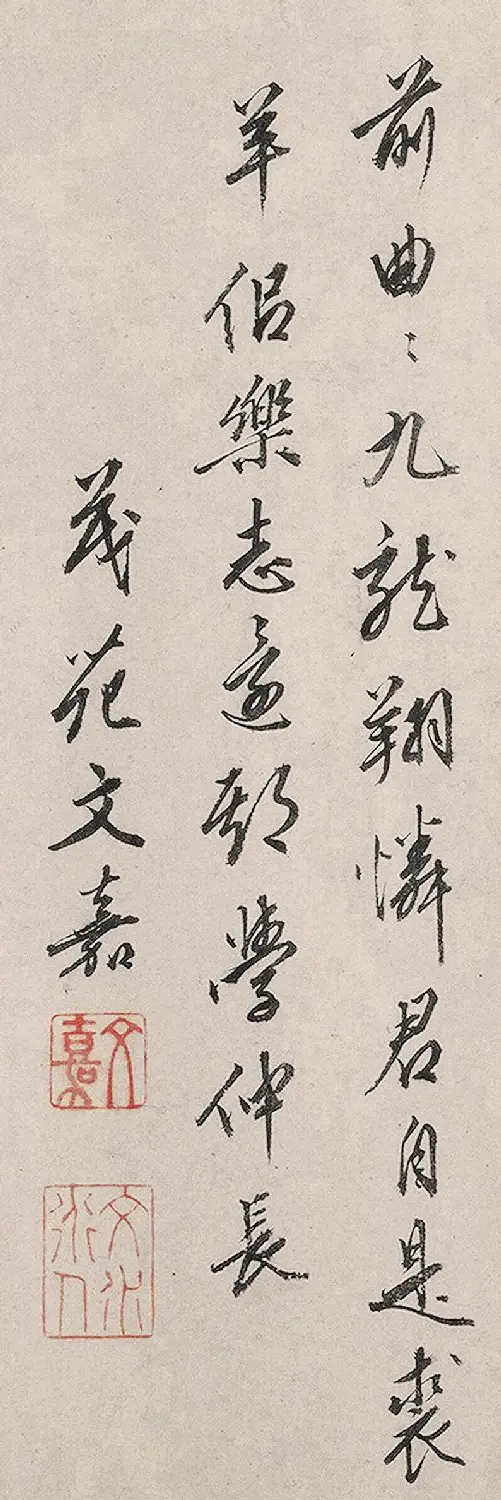 前曲〻九龍翔憐君自是裘
羊侣樂志還學仲長
茂苑文嘉
文嘉
文水道人